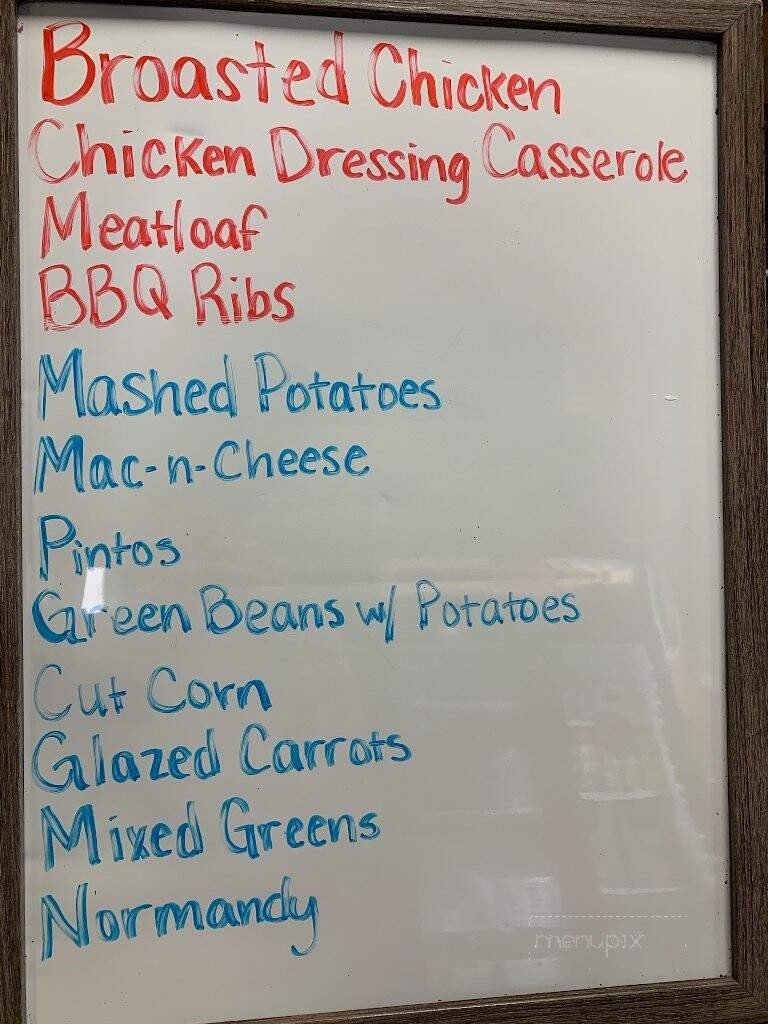 Broasted Chicken
Chicken Dressing Casserole
Meatloaf
BBQ Ribs
Mashed Potatoes
Mac-n-Cheese
Pintos
Green Beans w/ Potatoes
Cut Corn
Glazed Carrots
Mixed Greens
Normandy
menupix